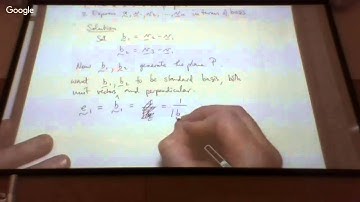 Google
2. Express in terms of basis
Solution
Set b₁ = r₂ - r₁
b₂ = r₃ - r₁
Now b₁, b₂ generate the plane P.
want b₁, b₂ to be standard basis, both
unit vectors and perpendicular.
e₁ = b₁ = = 1 / |b